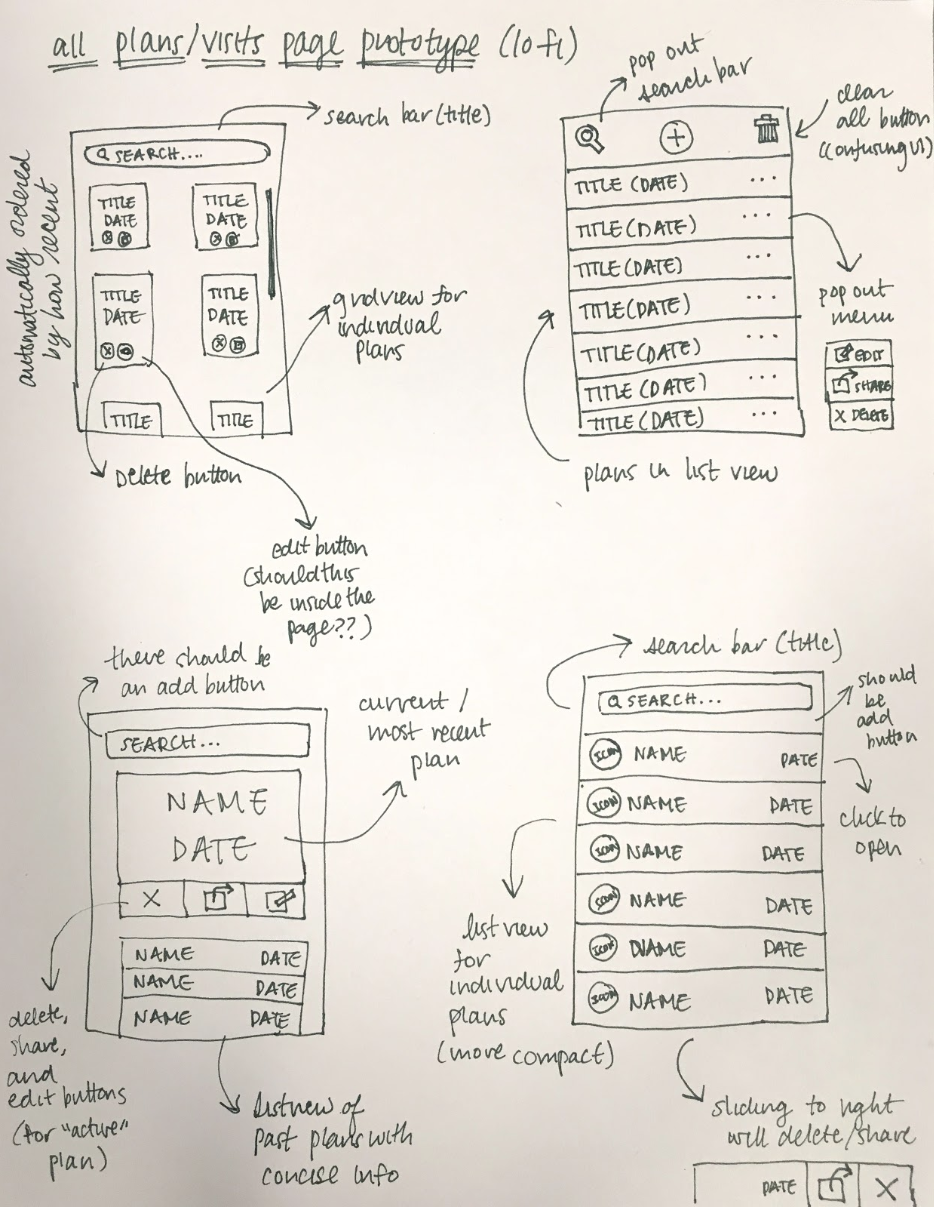 all plans/visits page prototype (lofi)
search bar (title)
SEARCH....
automatically ordered
by how recent
TITLE
DATE
TITLE
DATE
TITLE
DATE
TITLE
DATE
TITLE
TITLE
gridview for
individual
plans
Delete button
edit button
(should this
be inside the
page??)
pop out
search bar
clear
all button
(confusing UI)
TITLE (DATE) ...
TITLE (DATE) ...
TITLE (DATE) ...
TITLE (DATE) ...
TITLE (DATE) ...
TITLE (DATE) ...
TITLE (DATE) ...
pop out
menu
EDIT
SHARE
X DELETE
plans in list view
there should be
an add button
SEARCH...
NAME
DATE
current /
most recent
plan
NAME DATE
NAME DATE
NAME DATE
delete,
share,
and
edit buttons
(for "active"
plan)
listview of
past plans with
concise info
search bar (title)
SEARCH...
should
be
add
button
ICON NAME DATE
ICON NAME DATE
ICON NAME DATE
ICON NAME DATE
ICON NAME DATE
ICON NAME DATE
click to
open
list view
for
individual
plans
(more compact)
sliding to right
will delete/share
DATE X